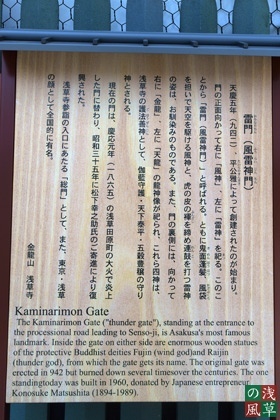 雷門（風雷神門）
天慶五年（九四二）、平公雅によって創建されたのが始まり。
門の正面向かって右に「風神」、左に「雷神」を祀る。このこ
とから「雷門（風雷神門）」と呼ばれる。ともに鬼面蓬髪、風袋
を担いで天空を駆ける風神と、虎の皮の褌を締め連鼓を打つ雷神
の姿は、お馴染みのものである。また、門の裏側には、向かって
右に「金龍」、左に「天龍」の龍神像が祀られ、これら四神は、
浅草寺の護法善神として、伽藍守護・天下泰平・五穀豊穣の守り
神とされる。
現在の門は、慶応元年（一八六五）の浅草田原町の大火で炎上
した門に替わり、昭和三十五年に松下幸之助氏のご寄進により復
興された。
浅草寺参詣の入口にあたる「総門」として、また、東京・浅草
の顔として全国的に有名。
金龍山　浅草寺
Kaminarimon Gate
The Kaminarimon Gate ("thunder gate"), standing at the entrance to
the processional road leading to Senso-ji, is Asakusa's most famous
landmark. Inside the gate on either side are enormous wooden statues
of the protective Buddhist deities Fujin (wind god)and Raijin
(thunder god), from which the gate gets its name. The original gate was
erected in 942 but burned down several timesover the centuries. The one
standingtoday was built in 1960, donated by Japanese entrepreneur
Konosuke Matsushita (1894-1989).
浅草
の風